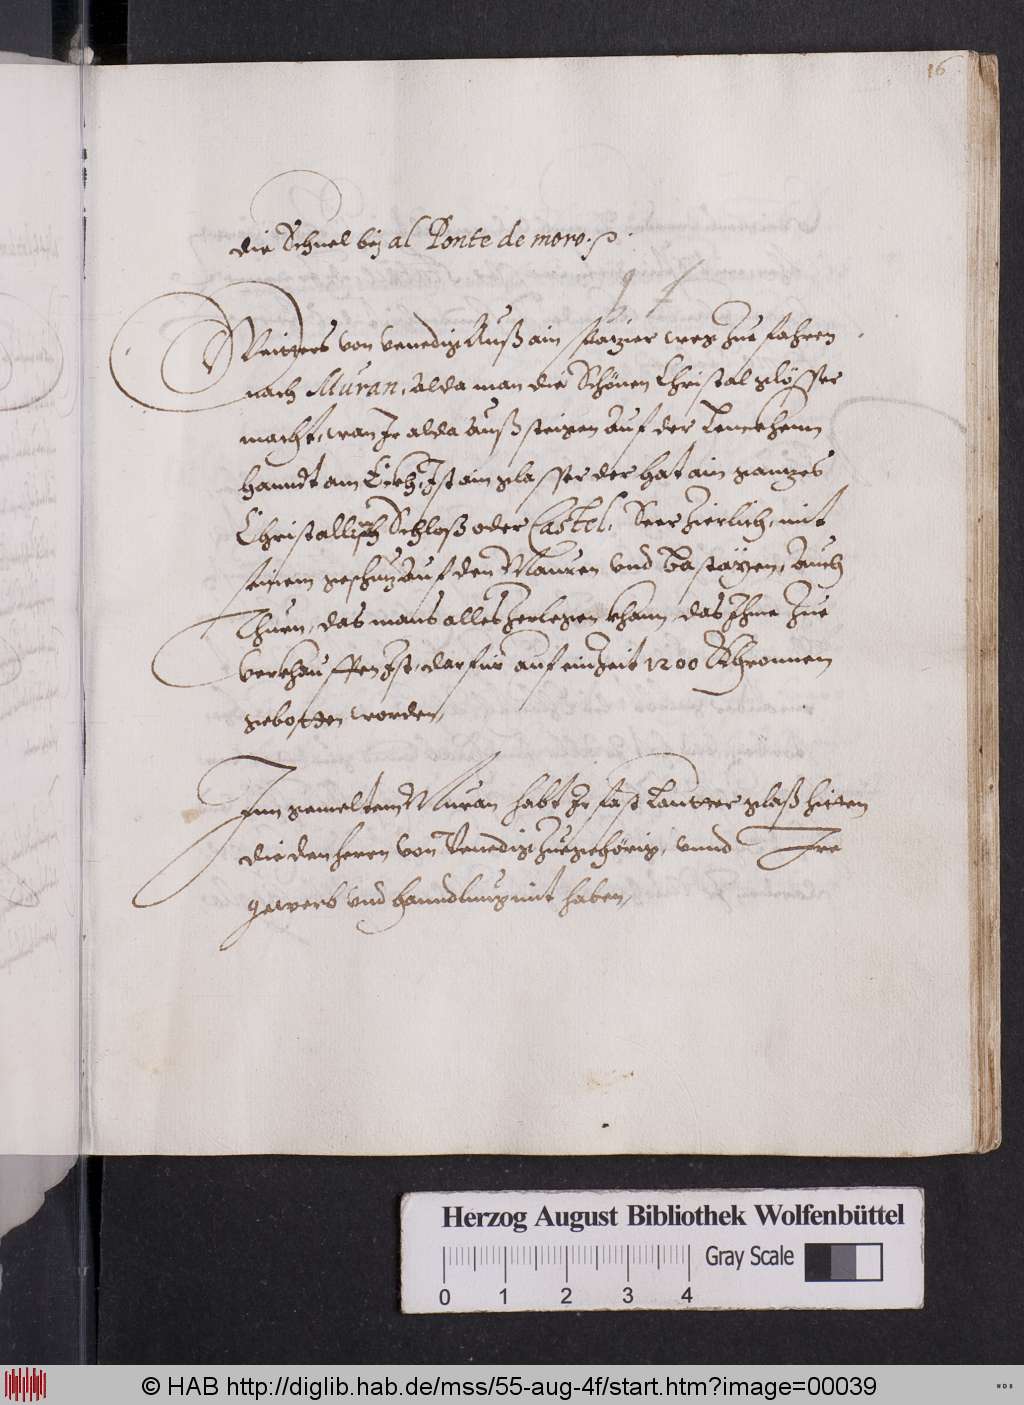 16
die Schuel bej al Ponte de moro.
Weitters von Venedig Auß ain spatzier weg zue fahren
nach Muran, alda man die Schönen Christal glösser
macht, wan Ir alda auß steigen auf der Lenckhenn
hanndt am Eckh, Ist ain glasser der hat ain gantzes
Christallisch Schloß oder Castel, Seer Zierlich, mit
seinem geschutz auf den Mauren vnd Bastäyen, Auch
Thurn, das mans alles Zerlegen khann, das Ihme Zue
verkhauffen Ist, darfür auf ein Zeit 1200 Khronnen
gebotten worden,
Inn gemeltem Muran habt Ir fast Lautter glaß hitten
die den herrn von Venedig Zuegehörig, vnnd Ire
gewerb vnd hanndlung mit haben,
Herzog August Bibliothek Wolfenbüttel
Gray Scale
0 1 2 3 4
© HAB http://diglib.hab.de/mss/55-aug-4f/start.htm?image=00039